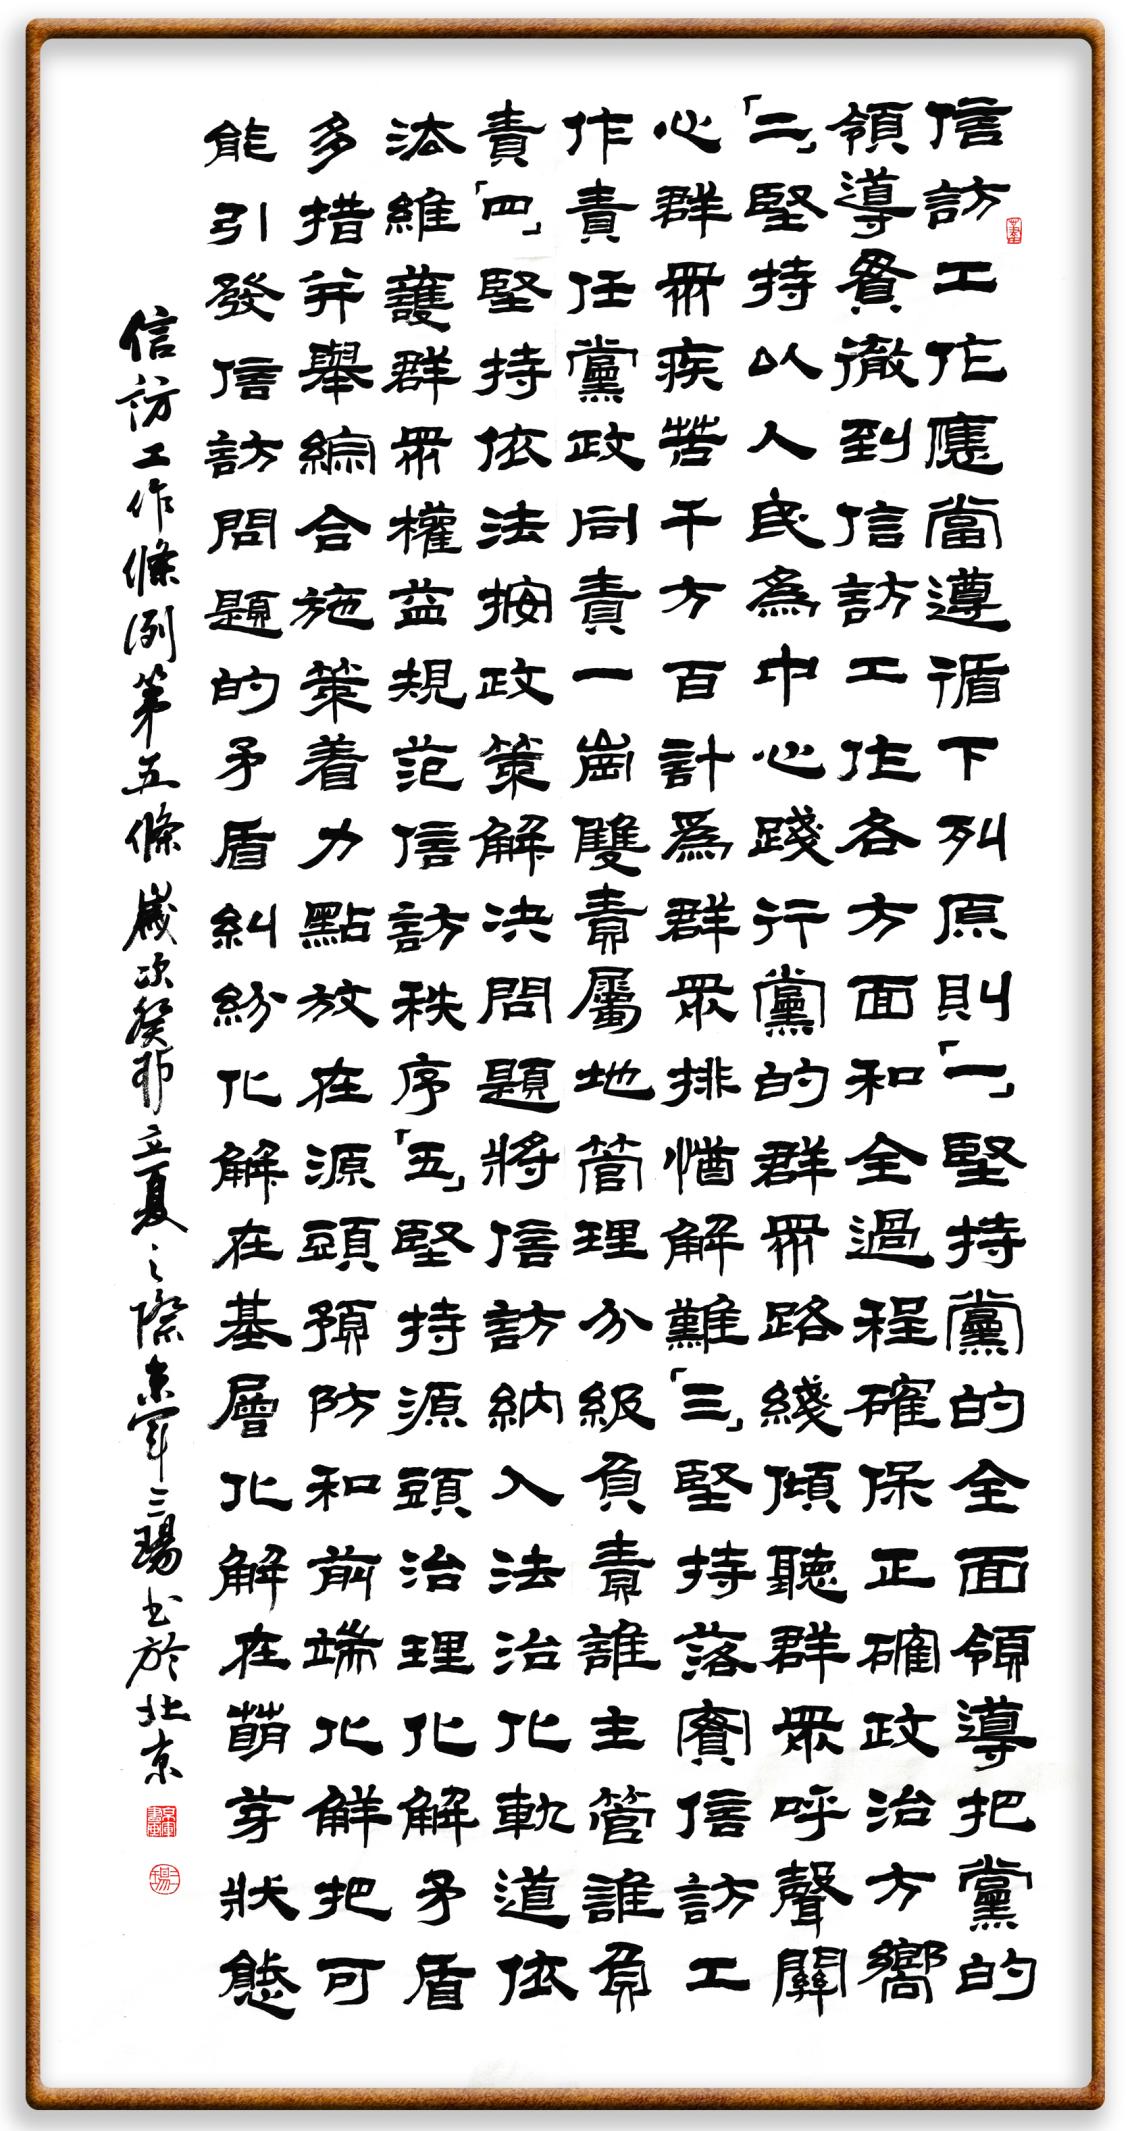 信訪工作應當遵循下列原則「一」堅持黨的全面領導把黨的
領導貫徹到信訪工作各方面和全過程確保正確政治方嚮
「二」堅持以人民為中心踐行黨的群眾路綫傾聽群眾呼聲關
心群眾疾苦千方百計為群眾排憂解難「三」堅持落實信訪工
作責任黨政同責一崗雙責屬地管理分級負責誰主管誰負
責「四」堅持依法按政策解決問題將信訪納入法治化軌道依
法維護群眾權益規范信訪秩序「五」堅持源頭治理化解矛盾
多措并舉綜合施策着力點放在源頭預防和前端化解把可
能引發信訪問題的矛盾糾紛化解在基層化解在萌芽狀態
信訪工作條例第五條 歲次癸卯立夏之際京軍三瑒書於北京